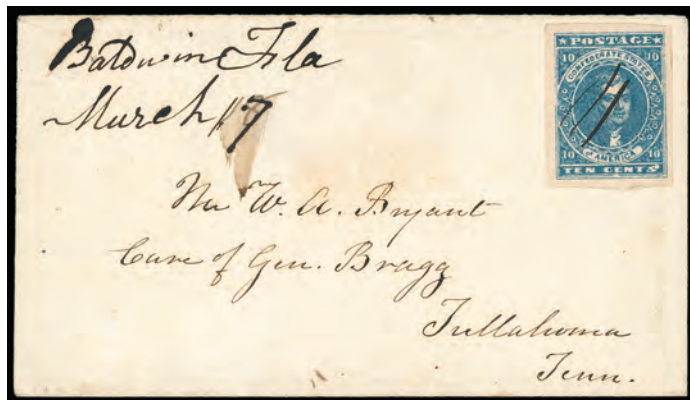 Baldwin Fla
March 17
★POSTAGE★
10 10
CONFEDERATE STATES
OF AMERICA
10 10
TEN CENTS
W. A. Bryant
Care of Gen. Bragg
Tullahoma
Tenn.